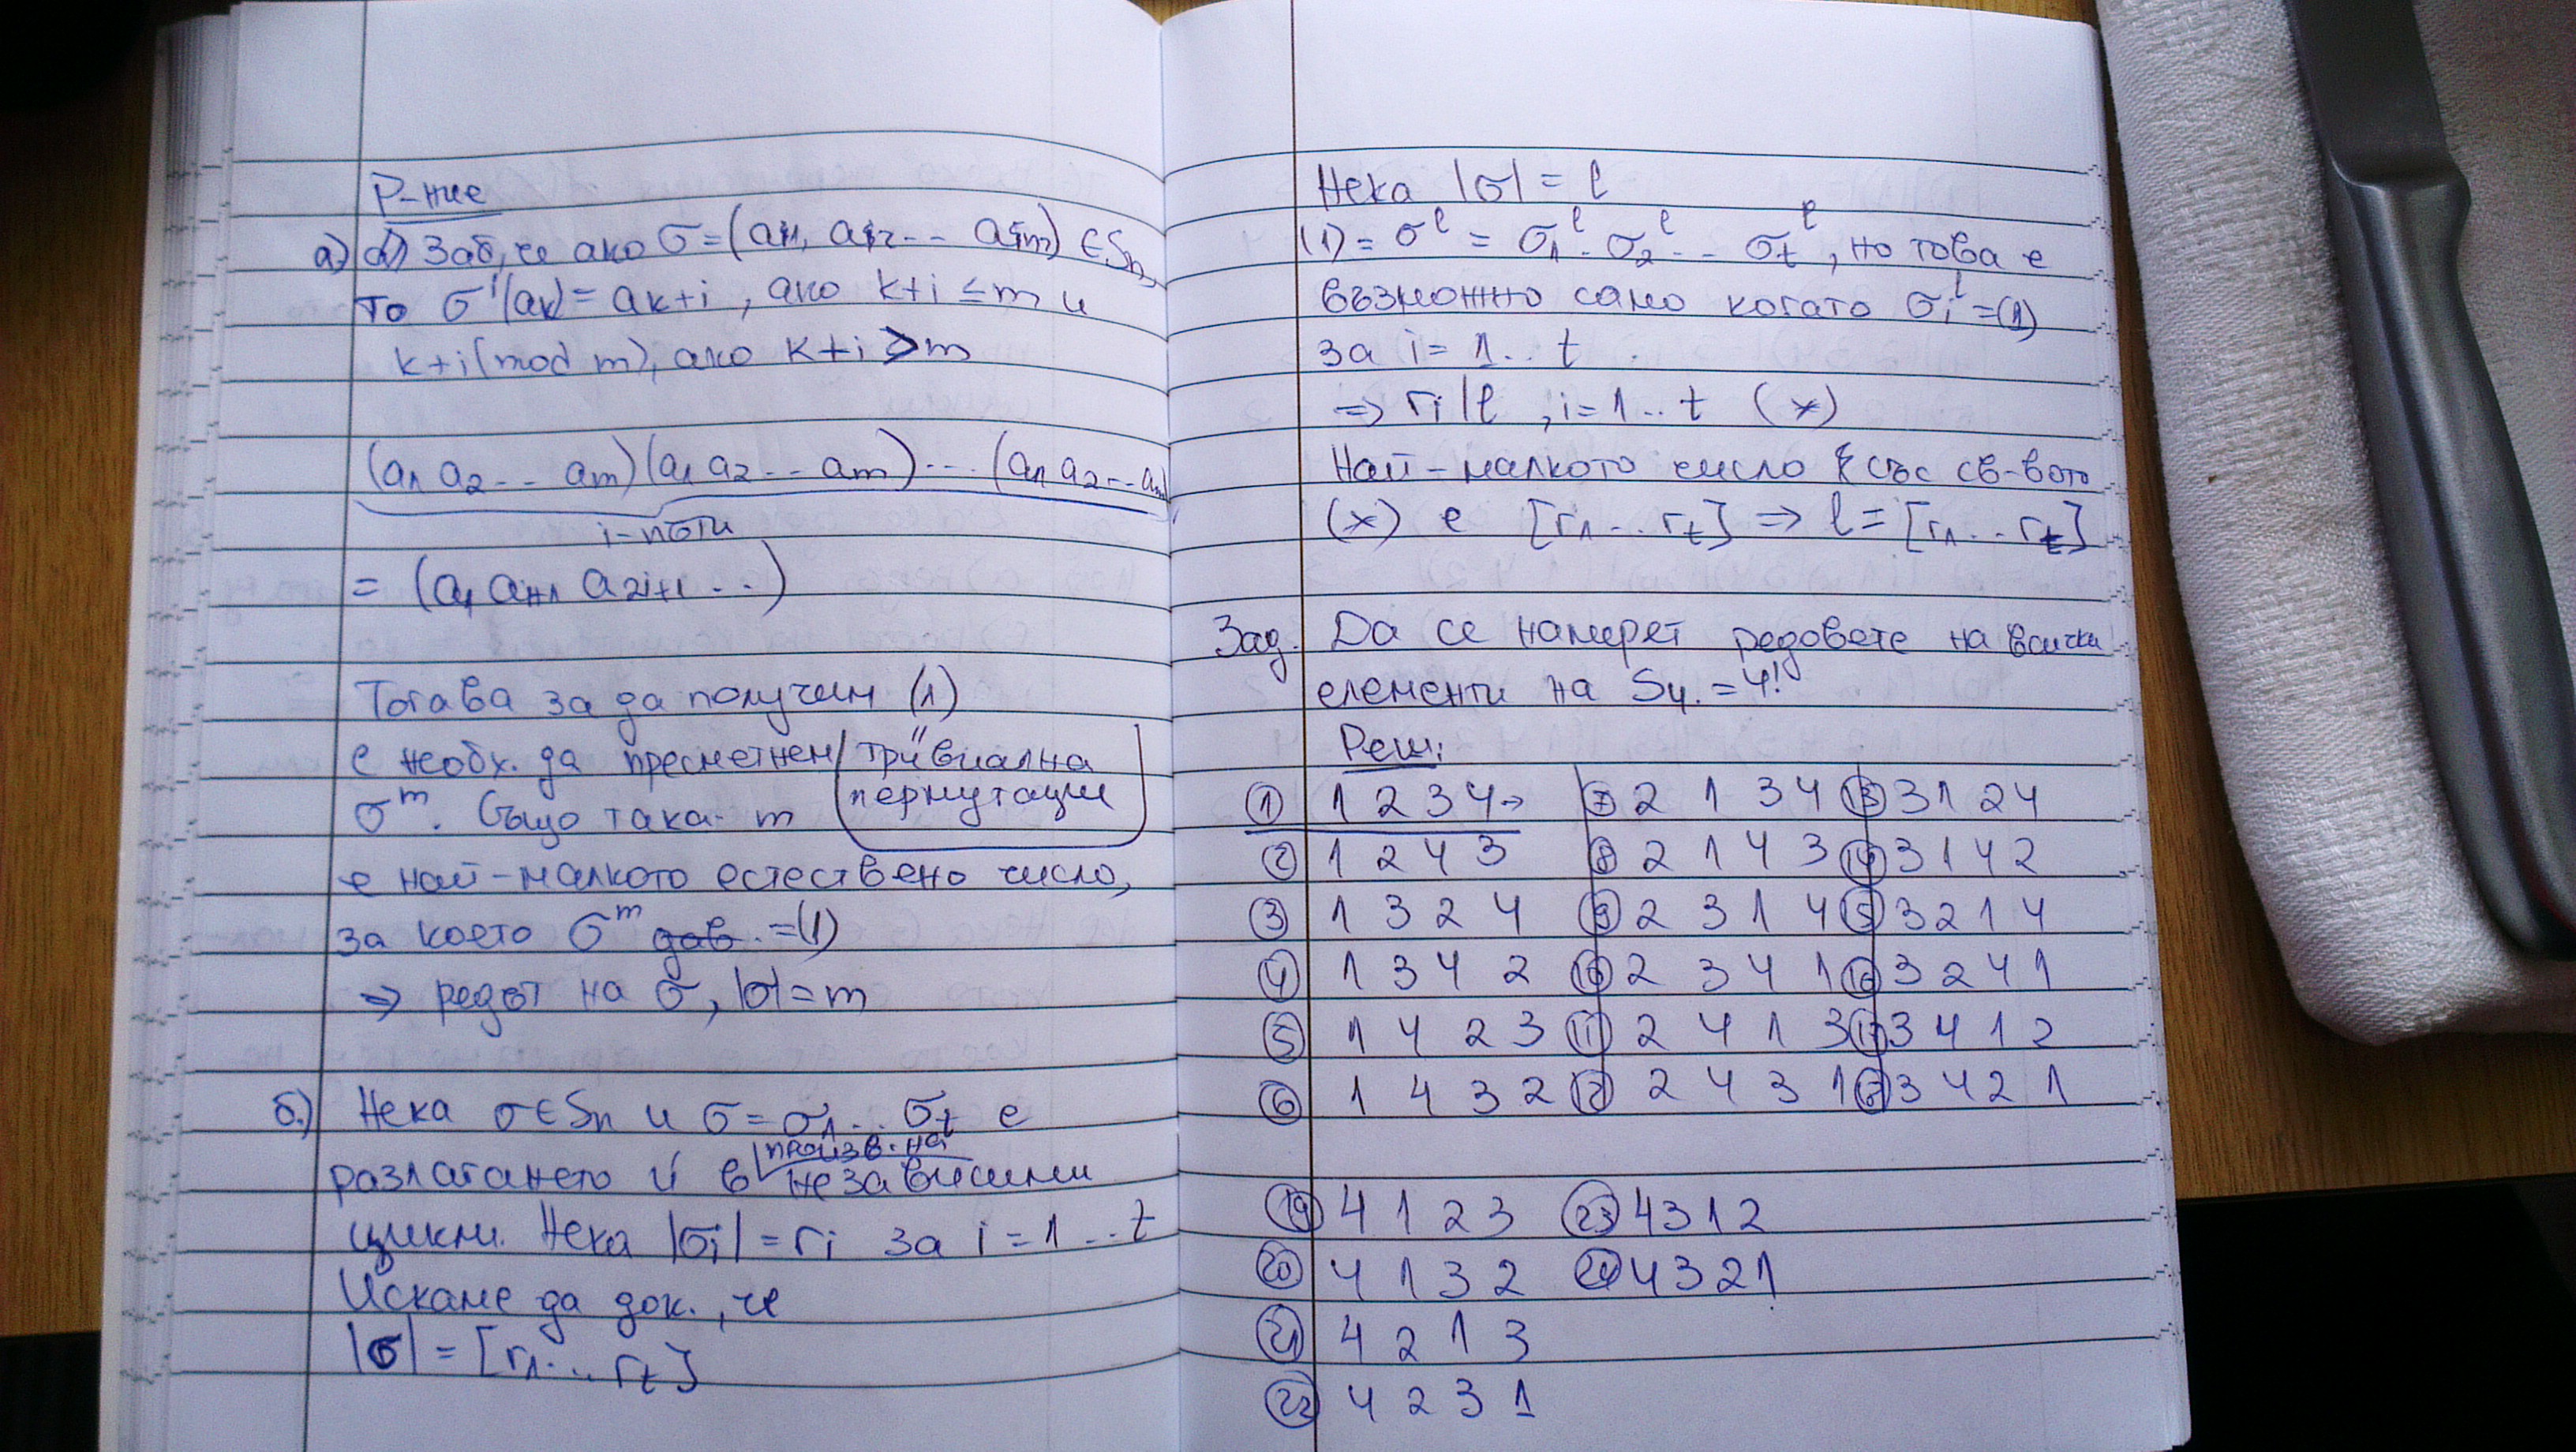 Р-ние
а) Заб, че ако σ = (a1, a2 .. am) ∈ Sn
то σ^i(ak) = ak+i, ако k+i ≤ m и
k+i (mod m), ако k+i > m
(a1 a2 .. am)(a1 a2 .. am) .... (a1 a2 .. am)
i-пъти
= (a1 ai+1 a2i+1 ..)
Тогава за да получим (1)
е необх. да пресметнем
тривиална
пермутация
σ^m. Също така m
е най-малкото естествено число,
за което σ^m = (1)
=> редът на σ, |σ| = m
б.) Нека σ ∈ Sn и σ = σ1 .. σt е
произв. на
разлагането ѝ в независими
цикли. Нека |σi| = ri за i = 1 .. t
Искаме да док., че
|σ| = [r1 ... rt]
Нека |σ| = l
(1) = σ^l = σ1^l . σ2^l .. σt^l, но това е
възможно само когато σi^l = (1)
за i = 1 .. t
=> ri | l , i = 1 .. t (*)
Най-малкото число l със св-вото
(*) е [r1 .. rt] => l = [r1 .. rt]
Зад. Да се намерят редовете на всички
елементи на S4. = 4!
Реш:
① 1 2 3 4 → ⑦ 2 1 3 4 ⑬ 3 1 2 4
② 1 2 4 3 ⑧ 2 1 4 3 ⑭ 3 1 4 2
③ 1 3 2 4 ⑨ 2 3 1 4 ⑮ 3 2 1 4
④ 1 3 4 2 ⑩ 2 3 4 1 ⑯ 3 2 4 1
⑤ 1 4 2 3 ⑪ 2 4 1 3 ⑰ 3 4 1 2
⑥ 1 4 3 2 ⑫ 2 4 3 1 ⑱ 3 4 2 1
⑲ 4 1 2 3 ㉓ 4 3 1 2
⑳ 4 1 3 2 ㉔ 4 3 2 1
㉑ 4 2 1 3
㉒ 4 2 3 1